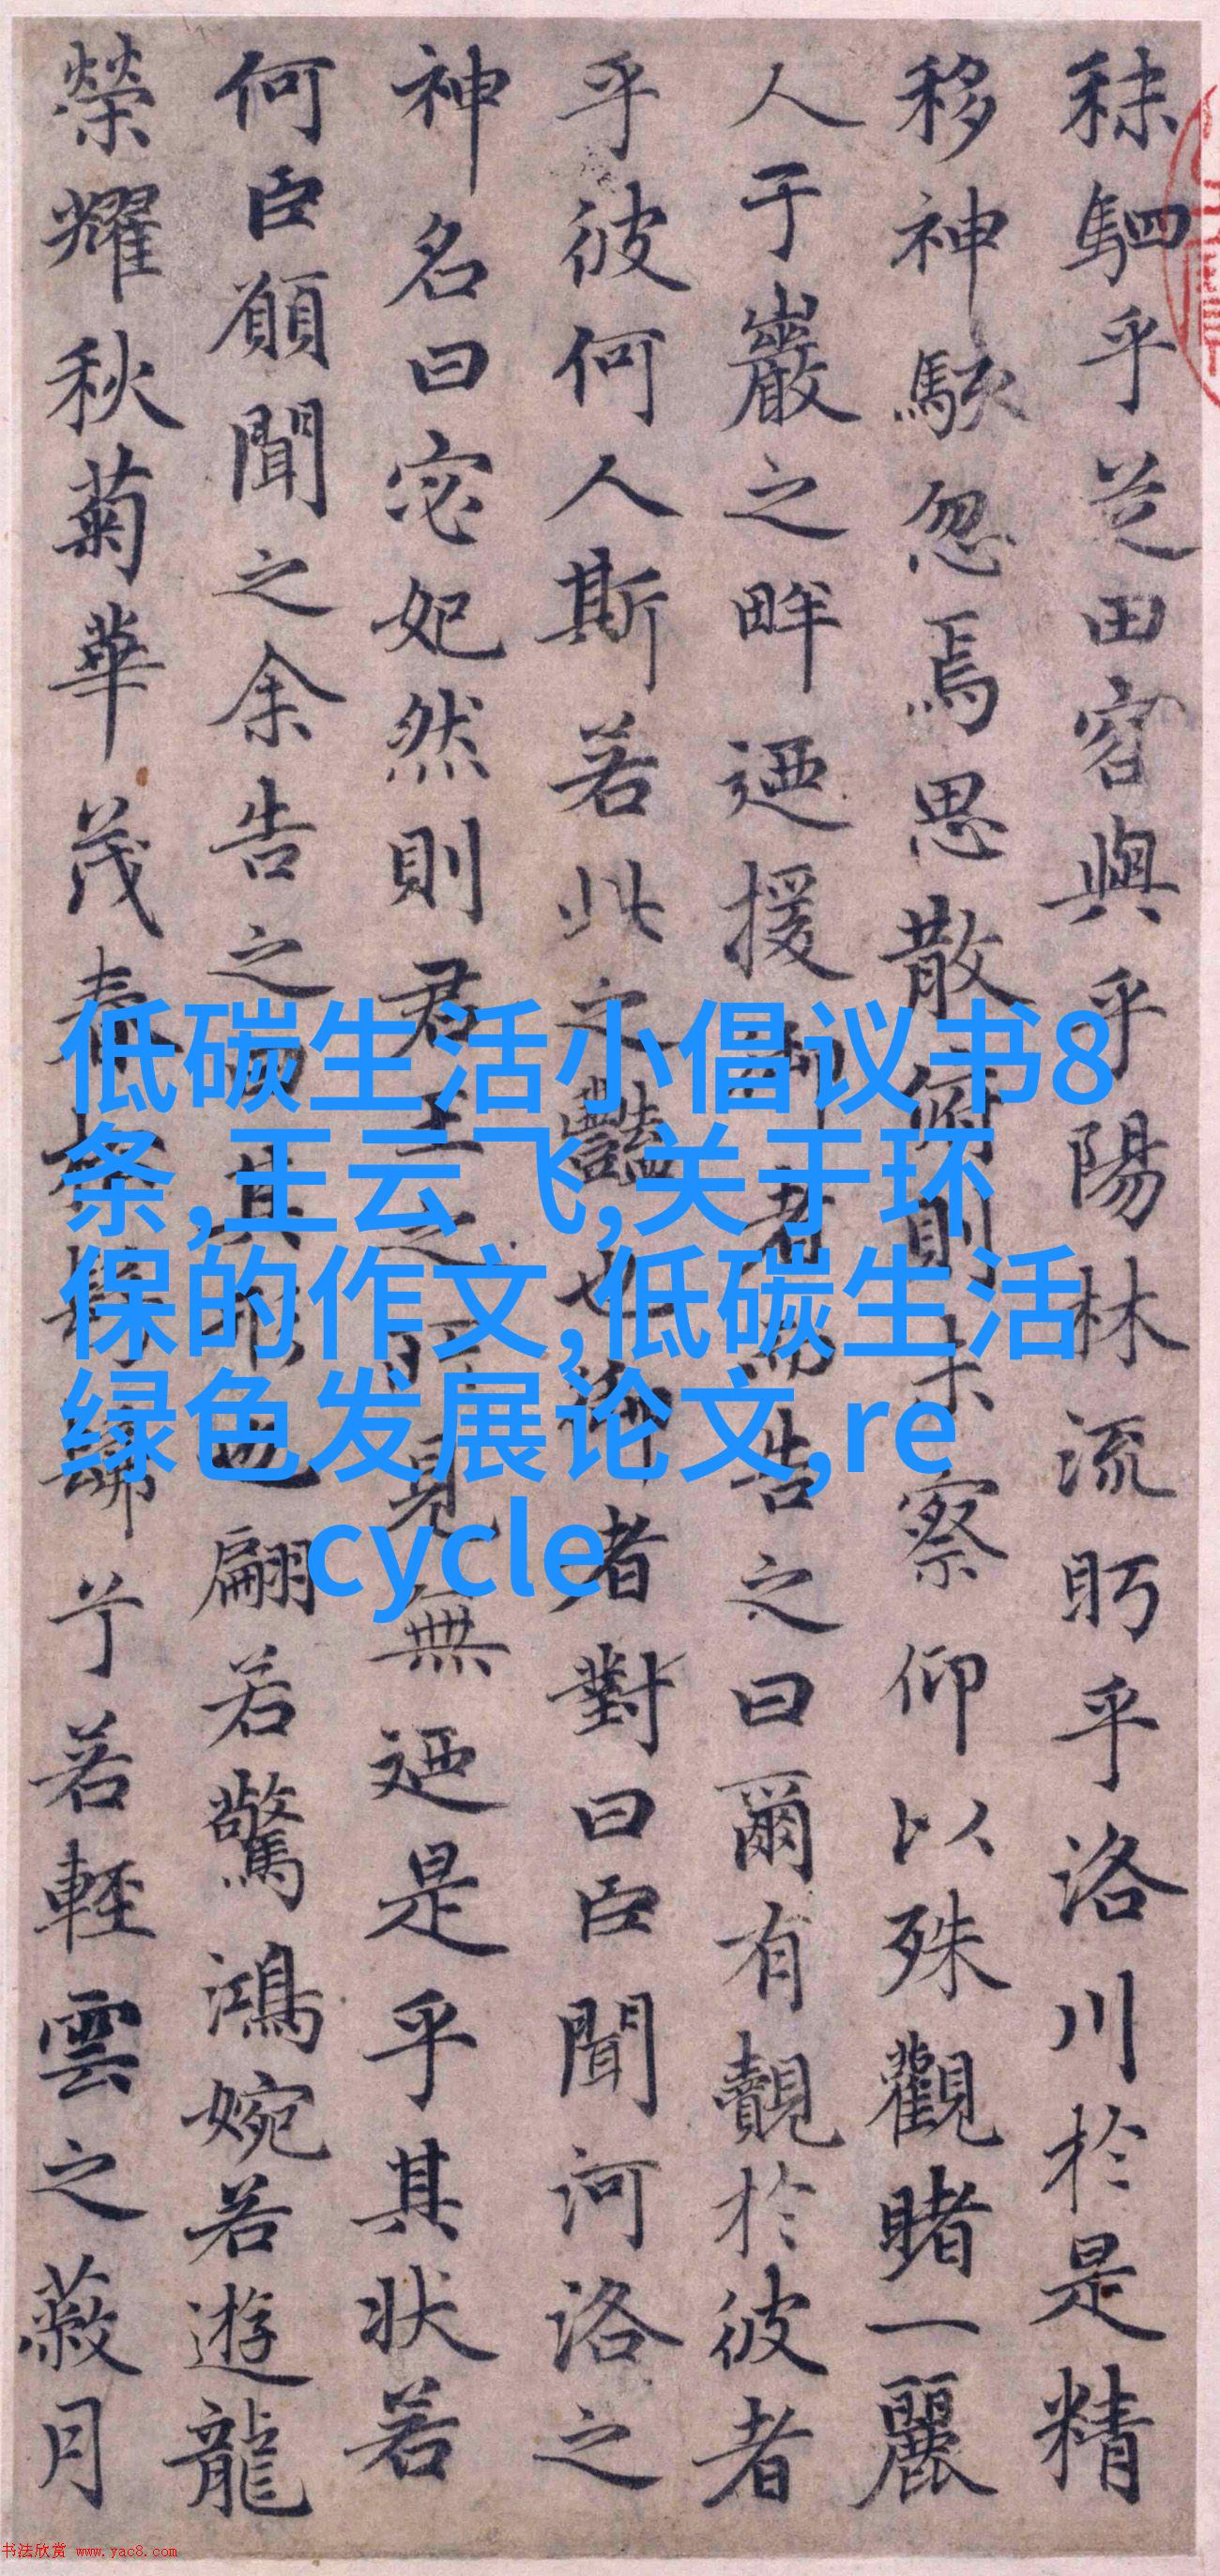 秣駟乎芝田容與乎陽林流眄乎洛川於是精
移神駭忽焉思散俯則未察仰以殊觀睹一麗
人于巖之畔迺援御者而告之曰爾有覿於彼者
乎彼何人斯若此之豔也御者對曰臣聞河洛之
神名曰宓妃然則君王之所見無迺是乎其狀若
何臣願聞之余告之曰其形也翩若驚鴻婉若遊龍
榮耀秋菊華茂春松髣髴兮若輕雲之蔽月
低碳生活小倡议书8
条,王云飞,关于环
保的作文,低碳生活
绿色发展论文,re
cycle
书法欣赏 www.yac8.com